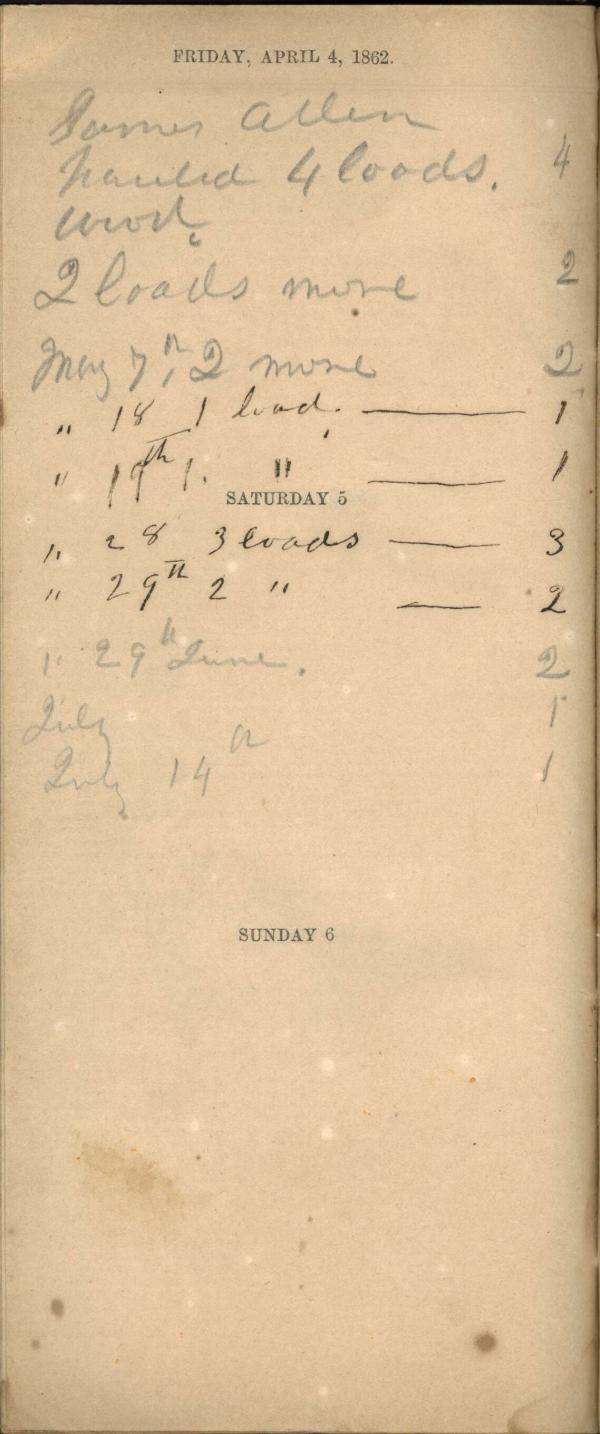 FRIDAY, APRIL 4, 1862.
James Allen
hauled 4 loads. 4
wood.
2 loads more 2
May 7th, 2 more 2
" 18 1 load. — 1
" 19th 1. " — 1
SATURDAY 5
" 28 3 loads — 3
" 29th 2 " — 2
" 29th June. 2
July 1
July 14th 1
SUNDAY 6